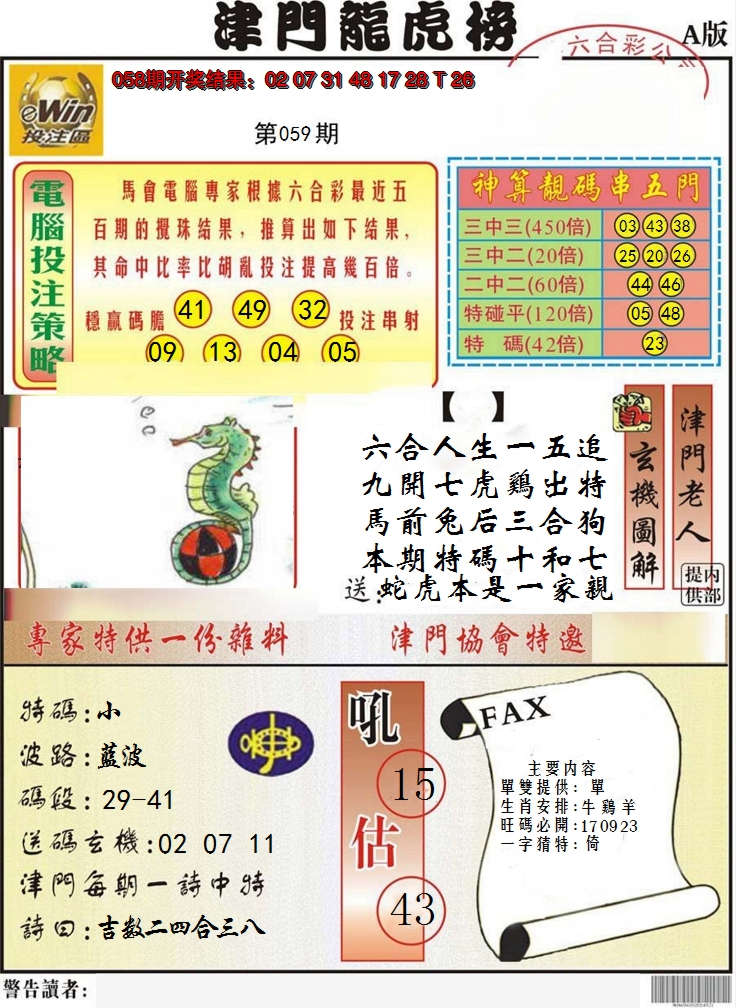 津門龍虎榜
A版
六合彩公
058期开奖结果：02 07 31 48 17 28 T 26
eWin
投注區
第059期
電腦投注策略
馬會電腦專家根據六合彩最近五
百期的攪珠结果，推算出如下结果，
其命中比率比胡亂投注提高幾百倍。
穩赢碼膽 41 49 32 投注串射
09 13 04 05
神算靚碼串五門
三中三(450倍) 03 43 38
三中二(20倍) 25 20 26
二中二(60倍) 44 46
特碰平(120倍) 05 48
特 碼(42倍) 23
【 】
六合人生一五追
九開七虎鷄出特
馬前兔后三合狗
本期特碼十和七
送:蛇虎本是一家親
玄機圖解
津門老人
内部提供
專家特供一份雜料
津門協會特邀
特碼:小
波路:藍波
碼段:29-41
送碼玄機:02 07 11
津門每期一詩中特
詩曰:吉数二四合三八
吼
15
估
43
FAX
主要内容
單雙提供：單
生肖安排:牛鷄羊
旺碼必開:170923
一字猜特:倚
警告讀者: